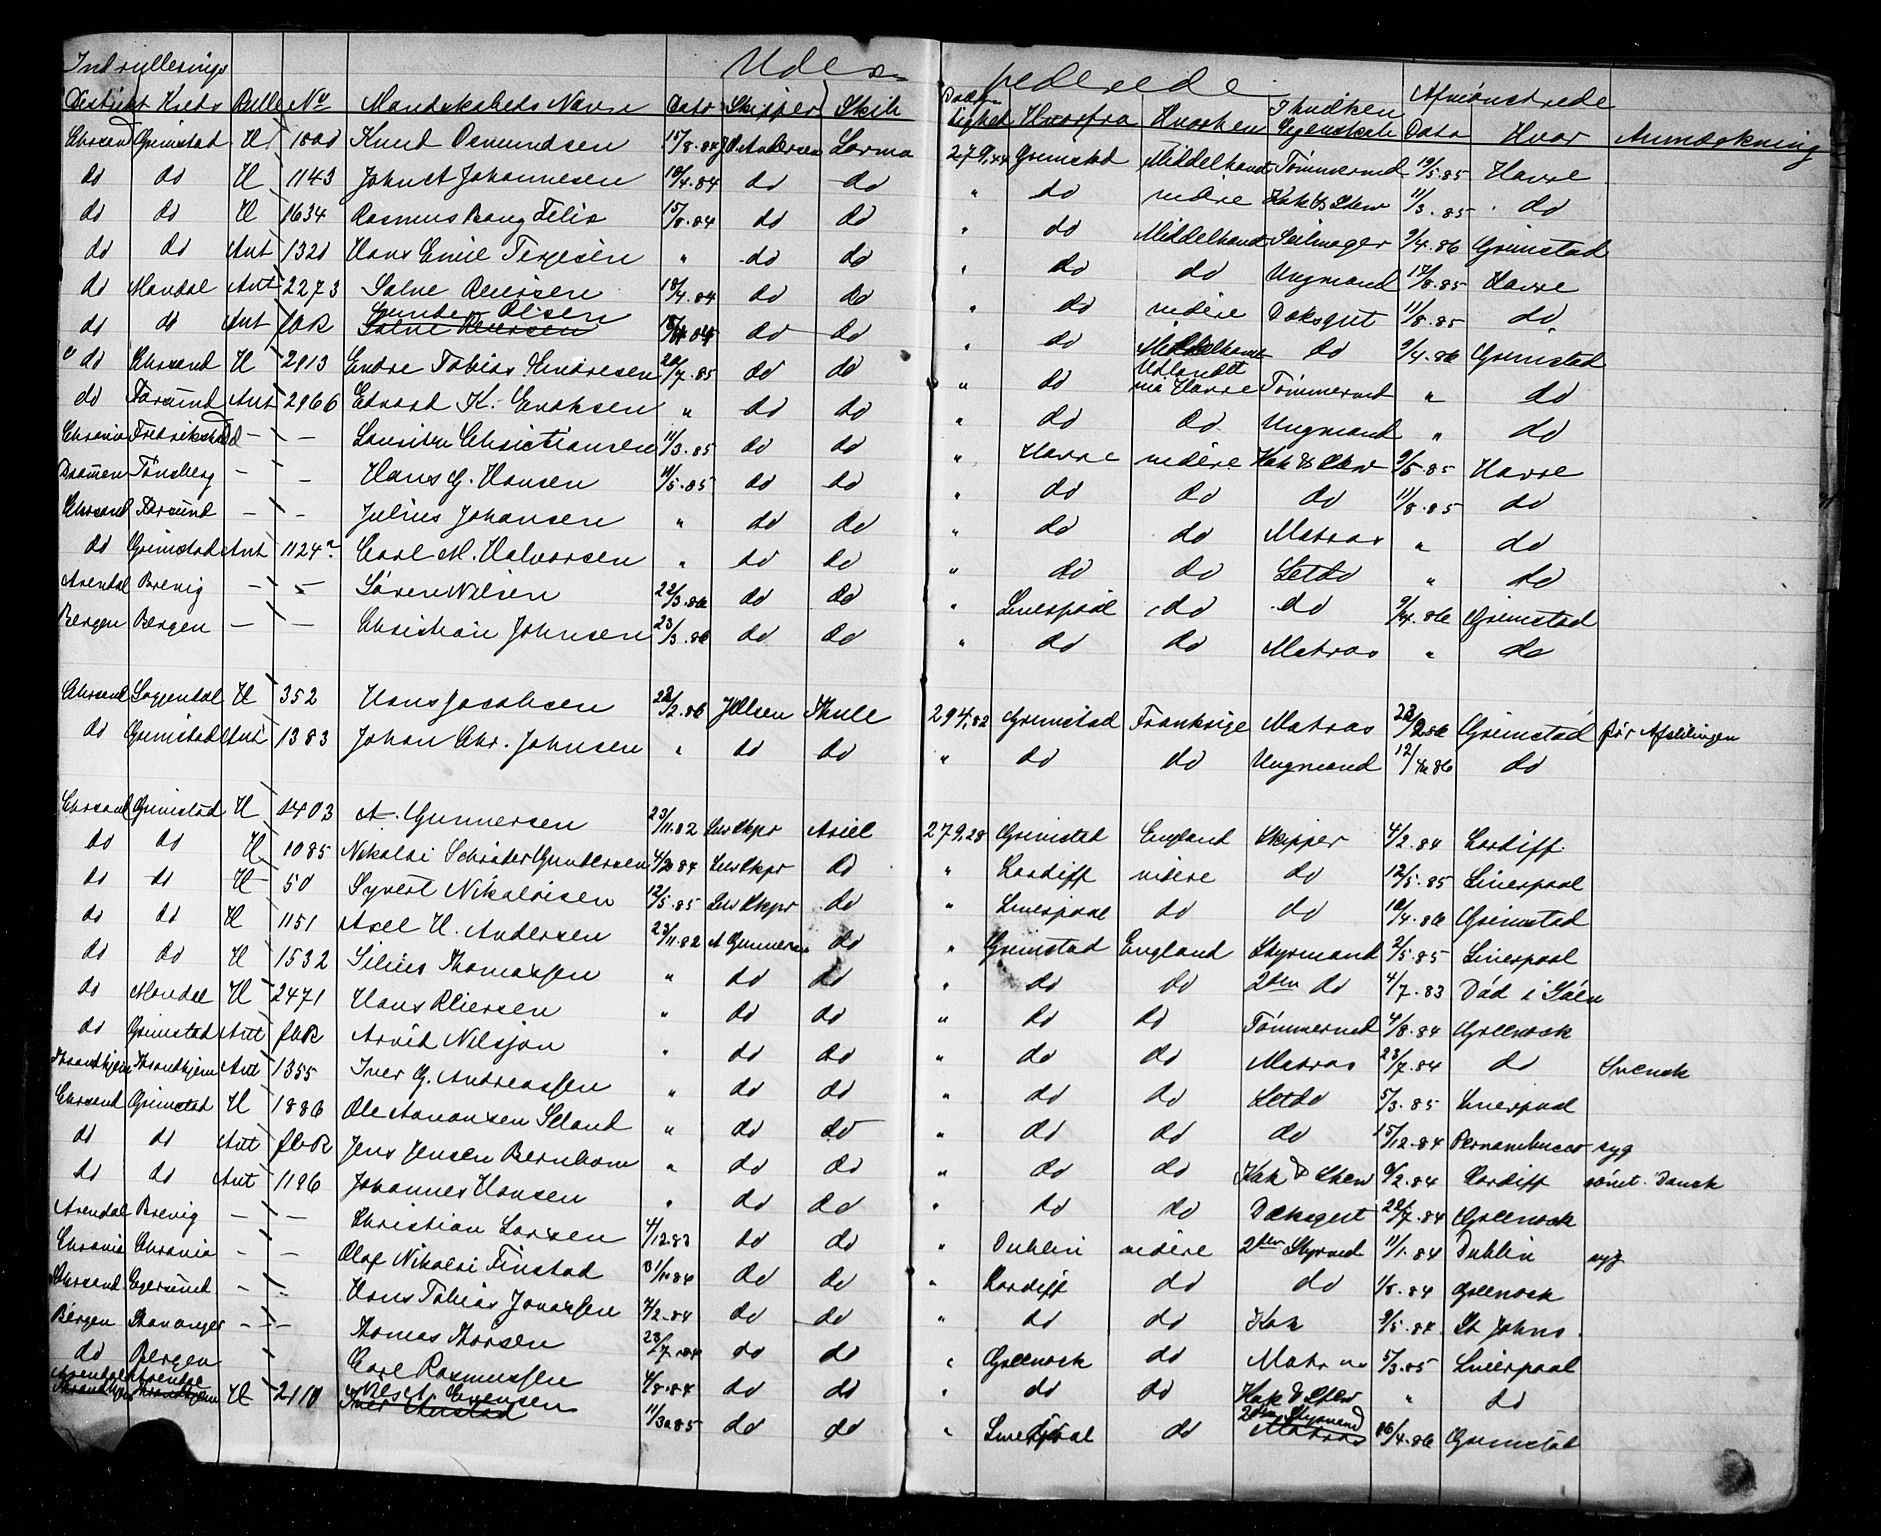 Indrullerings Udex- pederede Afmönstrede
District Kreds Rulle No Mandskabets Navn Dato Skipper Skib Dræg- tighed Hvorfra Hvorhen I hvilken Egenskab Dato Hvor Anmærkning
Chrsand Grimstad H Knud Osmundsen 15/8.84 Andersen Lorma 279,44 Grimstad Middelhavet Tømmermd 19/5.85 Havre
do do H 1143 Johannesen 18/4.84 do do " do videre Kok & Stew 11/3.85 do
do do H 1634 Rasmus Bang Felix 15/8.84 do do " do Middelhavet Seilmager 9/4.86 Grimstad
do do Ant 1320 Hans Emil Terjesen " do do " do do Ungmand Havre
do Mandal Ant 2273 Salve 18/4.84 do do " do videre Dæksgut 11/8.85 do
do do Ant fbR Gunder Olsen do do " do Middelhavet do 9/4.86 Grimstad
" do Chrsand H 2913 Endre Tobias Hendresen 20/7.85 do do " do Udlandet via Havre Tømmermd " do
do Farsund Ant 2966 Edvard K. Enoksen " do do " do do Ungmand " do
Chrania Fredrikstad — — Lauritz Christiansen 11/3.85 do do " Havre videre Kok & Stew 9/5.85 Havre
Drammen Tönsberg — — Hans G. Hansen 11/5.85 do do " do do do 11/8.85 do
Chrsand Farsund — — Julius Johansen " do do " do do Matros " do
do Grimstad Ant 1124 Carl M. Halvorsen " do do " do do Letdo " do
Arendal Brevig — — Sören Nilsen 22/3.86 do do " Liverpool do do 9/4.86 Grimstad
Bergen Bergen — — Christian Johnsen 23/3.86 do do " do do Matros " do
Chrsand Soggendal H 352 Hans Jacobsen 22/2.86 J Olsen Thule 294,82 Grimstad Frankrige Matros Grimstad før Afseilingen
do Grimstad Ant 1383 Johan Chr. Johnsen " do do " do do Ungmand 12/4.86 do
Chrsand Grimstad H 1403 A. Gunnersen 23/11.82 Selv Skpr Ariel 279,28 Grimstad England Skipper 4/2.84 Cardiff
do do H 1085 Nikolai Schröder Gundersen 4/2.84 Selv Skpr do " Cardiff videre do 12/5.85 Liverpool
do do H 50 Syvert Nikolaisen 12/5.85 Selv Skpr do " Liverpool do do Grimstad
do do H 1151 Axel H. Andersen 23/11.82 A Gunnersen do " Grimstad England Styrmand 2/5.85 Liverpool
do do H 1532 Silius Thomassen " do do " do do 2den do 4/7.83 Död i Söen
do Mandal H 2471 Hans " do do " do do Tømmermd 4/8.84 Greenock
do Grimstad Ant fbR Arvid Nilsjon " do do " do do Matros 23/7.84 do Svensk
Throndhjem Throndhjem Ant 1355 Iver G. Andreassen " do do " do do Letdo 5/3.85 Liverpool
Chrsand Grimstad H 1886 Ole Aanonsen Seland " do do " do do do 15/12.84 Pernambuco syg
do do Ant fbR Jens Jensen Bernhom " do do " do do Kok & Stew 6/2.84 Cardiff römt. Dansk
do do Ant 1196 Johannes Hansen " do do " do do Dæksgut 22/7.84 Greenock
Arendal Brevig — — Christian Larsen 4/12.83 do do " Dublin videre 2den Styrmd 11/1.84 Dublin syg
Chrania Chrania — — Olaf Nikolai Finstad do do " Cardiff do do 1/8.84 Greenock
Chrsand Egersund — — Hans Tobias Jonassen 4/2.84 do do " do do Kok 9/5.84 St Johns
Bergen Stavanger — — Thomas Thorsen 23/7.84 do do " Greenock do Matros 5/3.85 Liverpool
do Bergen Carl Rasmussen 4/8.84 do do " do do Kok & Stew " do
Arendal Arendal Throndhjem Throndhjem H 2110 Evensen Iver do do " Liverpool do 2den Styrmand Matros 16/4.86 Grimstad